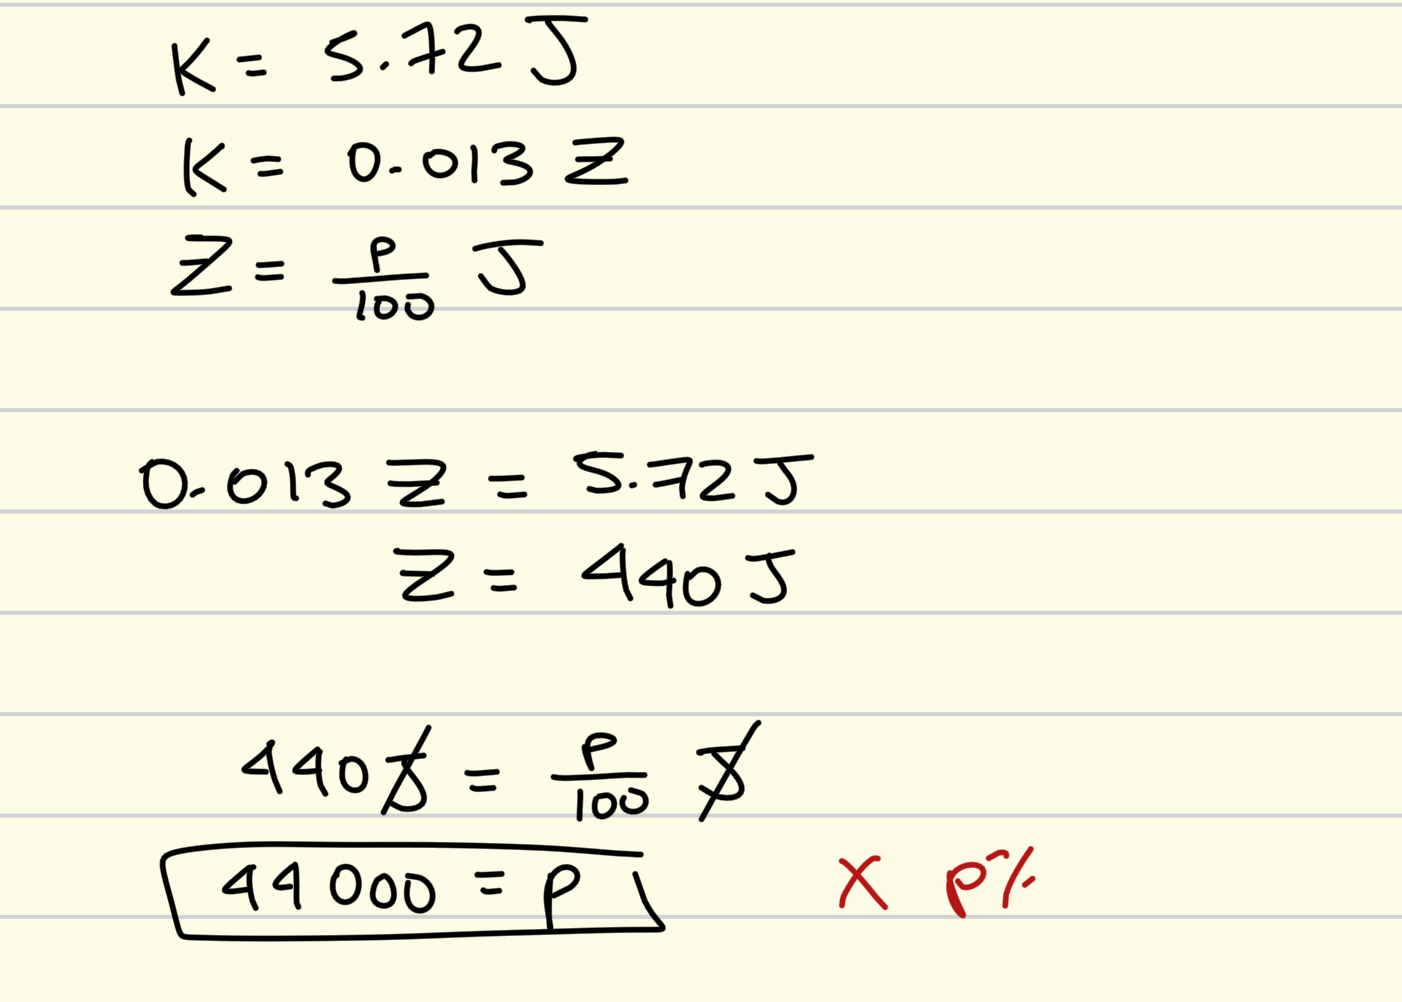 K = 5.72 J
K = 0.013 Z
Z = p/100 J
0.013 Z = 5.72 J
Z = 440 J
440 J = p/100 J
44000 = p X p%